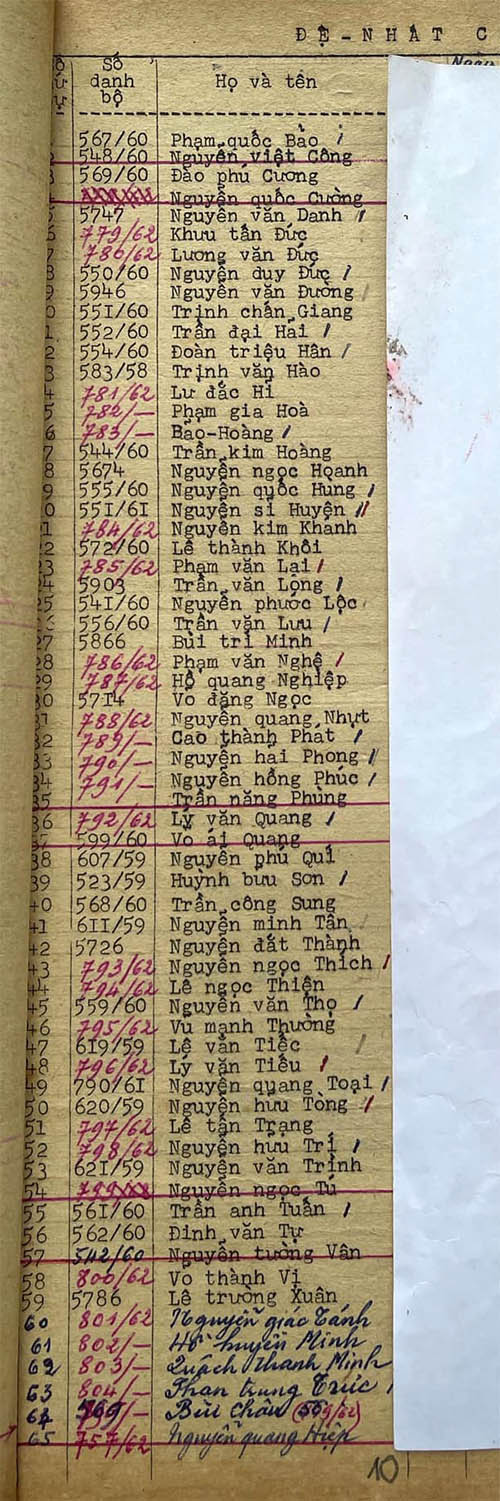 ĐỆ-NHẤT C
Số danh bộ Họ và tên
567/60 Phạm quốc Bảo
548/60 Nguyễn việt Công
569/60 Đào phú Cương
Nguyễn quốc Cường
5747 Nguyễn văn Danh
6 779/62 Khưu tấn Đức
7 780/62 Lương văn Đức
8 550/60 Nguyễn duy Đức
9 5946 Nguyễn văn Đường
0 55I/60 Trịnh chấn Giang
1 552/60 Trần đại Hải
2 554/60 Đoàn triệu Hân
3 583/58 Trịnh văn Hào
4 781/62 Lư đắc Hỉ
5 782/— Phạm gia Hoà
6 783/— Bảo-Hoàng
7 544/60 Trần kim Hoàng
8 5674 Nguyễn ngọc Hoanh
9 555/60 Nguyễn quốc Hưng
0 55I/6I Nguyễn sĩ Huyện
1 784/62 Nguyễn kim Khánh
2 572/60 Lê thành Khôi
3 785/62 Phạm văn Lại
4 5903 Trần văn Lộng
25 54I/60 Nguyễn phước Lộc
26 556/60 Trần văn Lưu
27 5866 Bùi trí Minh
28 786/62 Phạm văn Nghệ
29 787/62 Hồ quang Nghiệp
30 57I4 Võ đăng Ngọc
31 788/62 Nguyễn quang Nhựt
32 789/— Cao thành Phát
33 790/— Nguyễn hải Phong
34 791/— Nguyễn hồng Phúc
35 Trần năng Phùng
36 792/62 Lý văn Quang
37 599/60 Võ ái Quang
38 607/59 Nguyễn phú Quí
39 523/59 Huỳnh bửu Sơn
40 568/60 Trần công Sung
41 6II/59 Nguyễn minh Tân
42 5726 Nguyễn đắt Thành
43 793/62 Nguyễn ngọc Thích
44 794/62 Lê ngọc Thiện
45 559/60 Nguyễn văn Thọ
46 795/62 Vũ mạnh Thường
47 6I9/59 Lê văn Tiếc
48 796/62 Lý văn Tiếu
49 790/6I Nguyễn quang Toại
50 620/59 Nguyễn hữu Tòng
51 797/62 Lê tấn Trạng
52 798/62 Nguyễn hữu Trí
53 62I/59 Nguyễn văn Trinh
54 799 Nguyễn ngọc Tú
55 56I/60 Trần anh Tuấn
56 562/60 Đinh văn Tự
57 542/60 Nguyễn tường Vân
58 800/62 Võ thành Vị
59 5786 Lê trường Xuân
60 801/62 Nguyễn giác Tánh
61 802/— Hồ huyền Minh
62 803/— Quách thanh Minh
63 804/— Phan trung Trực
64 Bửu Châu
65 757/62 Nguyễn quang Hiệp
10